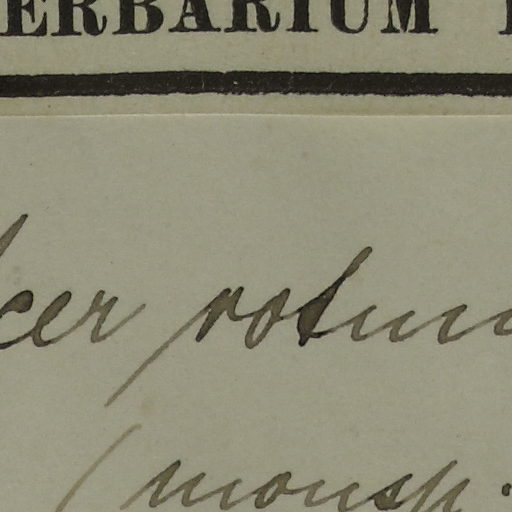 ERBARIUM
cer rotun
(monsp.